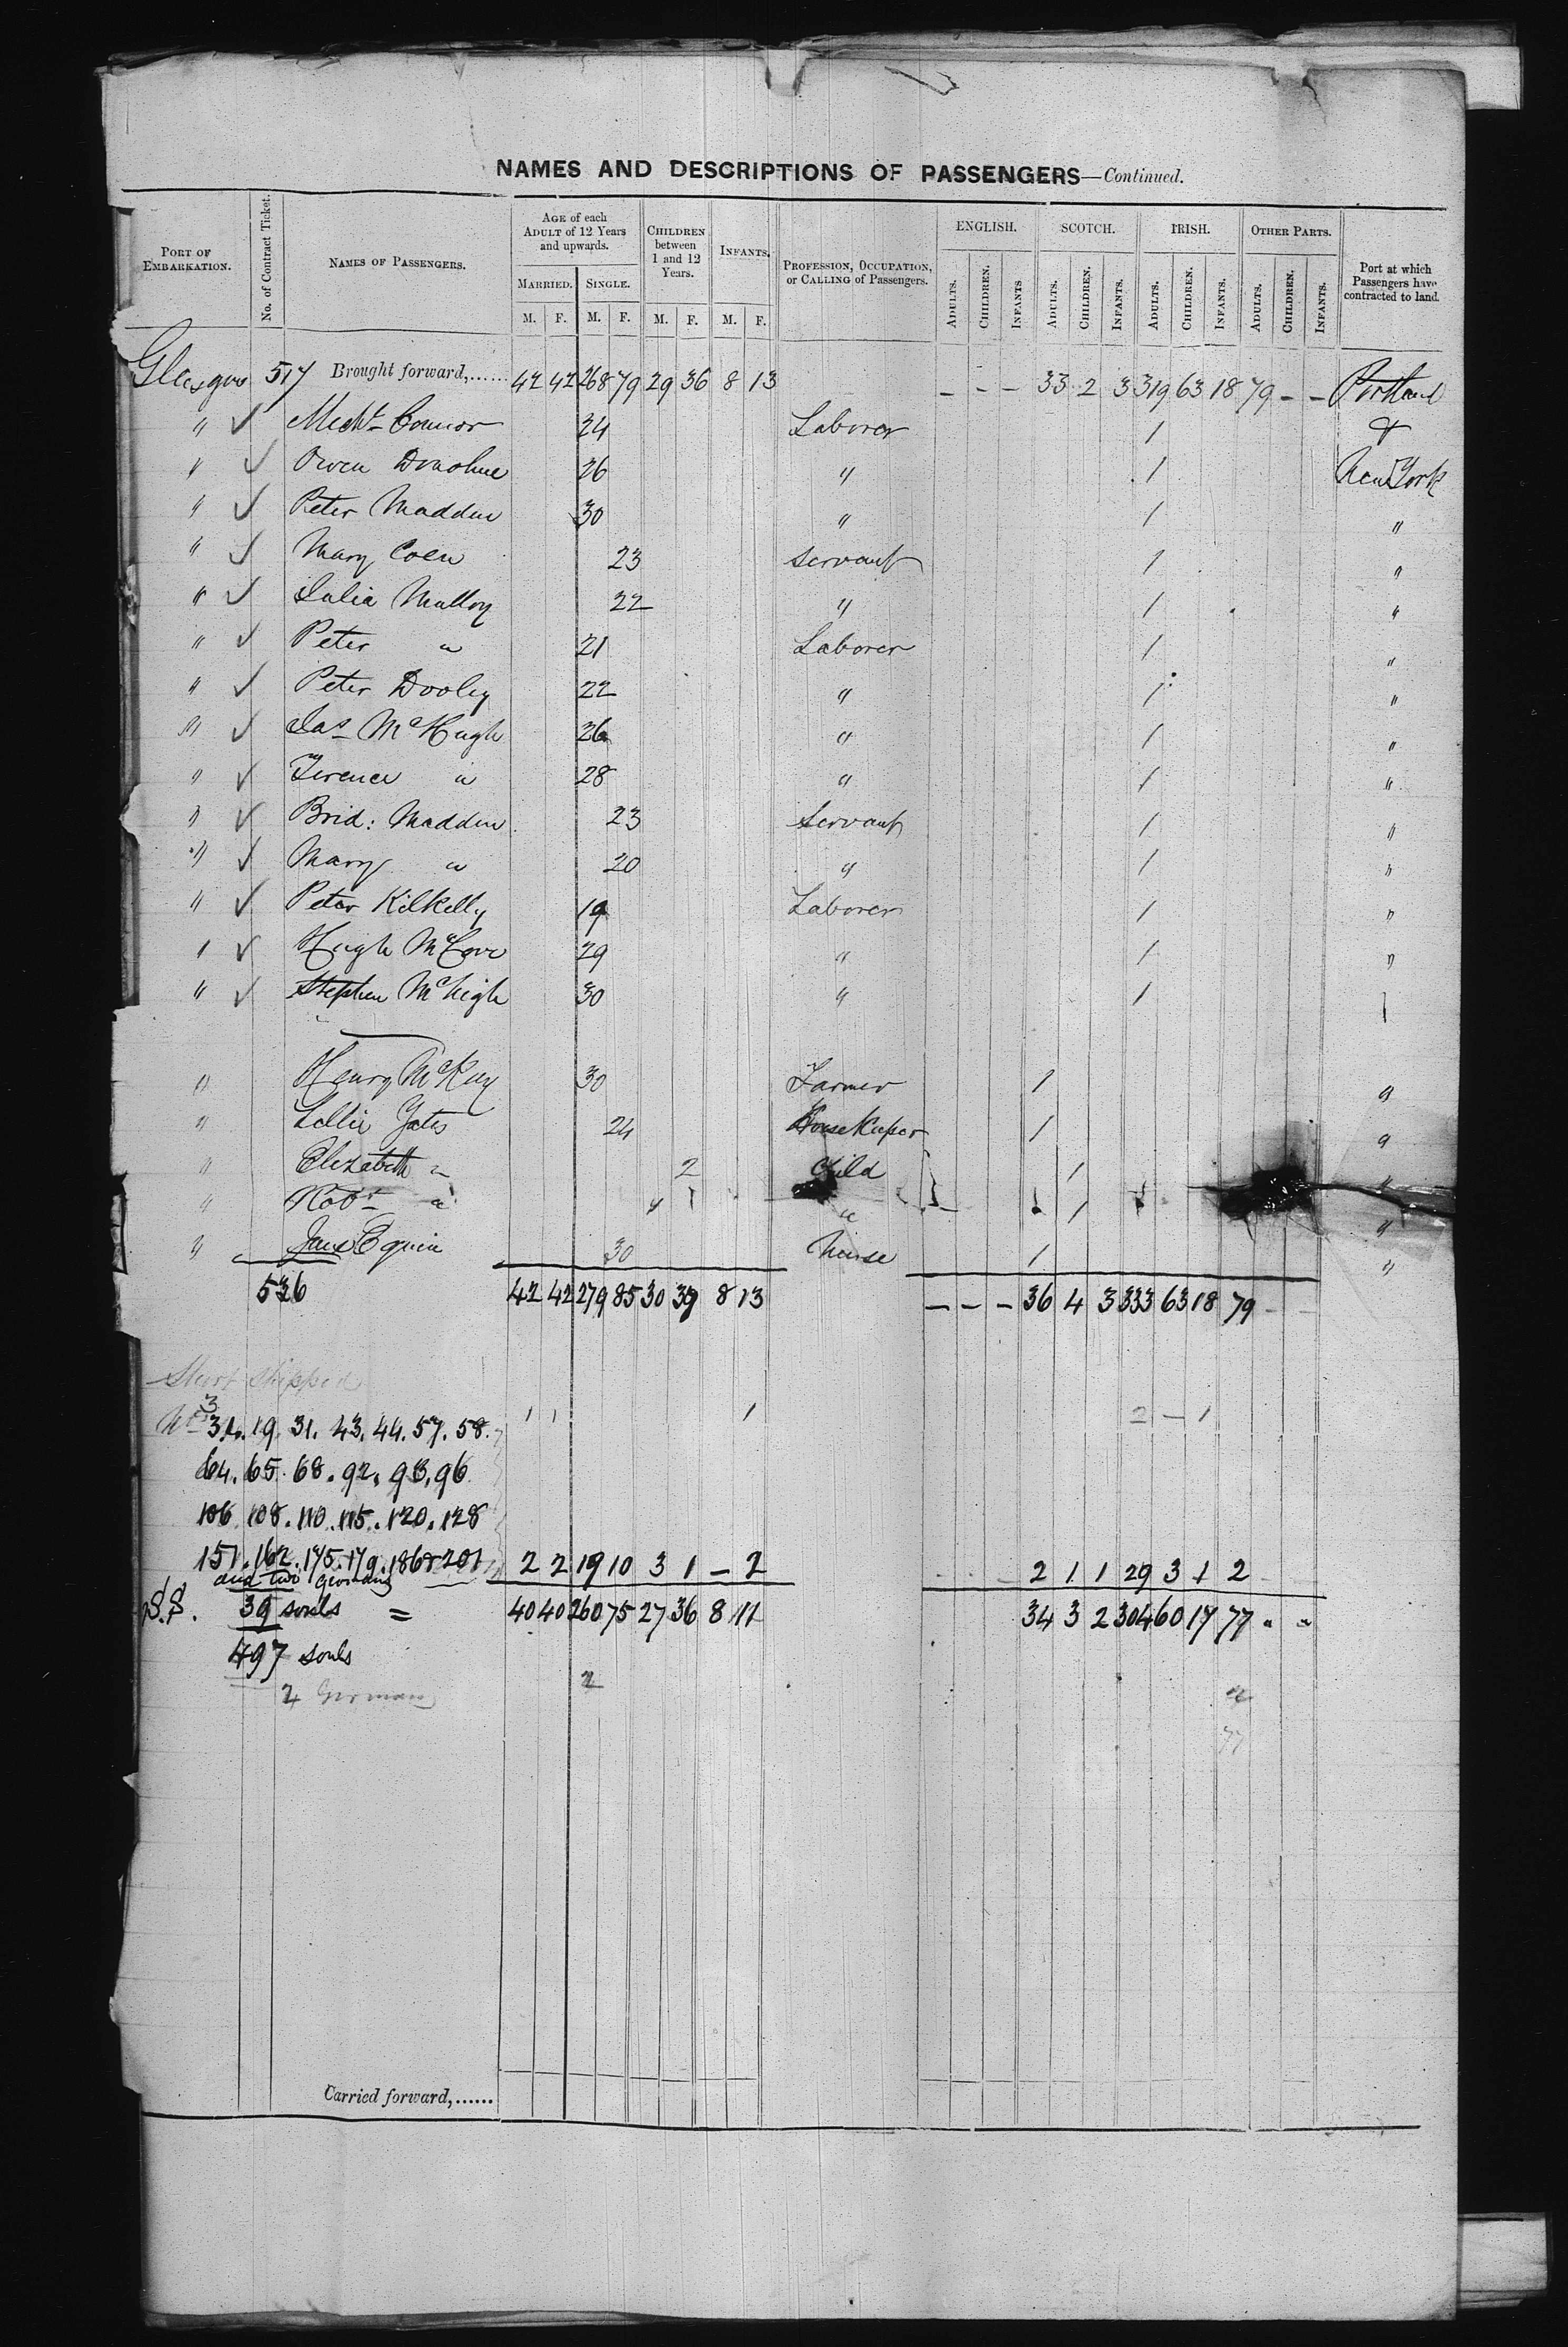 NAMES AND DESCRIPTIONS OF PASSENGERS—Continued.
PORT OF EMBARKATION. No. of Contract Ticket. NAMES OF PASSENGERS. AGE of each ADULT of 12 Years and upwards. CHILDREN between 1 and 12 Years. INFANTS. PROFESSION, OCCUPATION, or CALLING of Passengers. ENGLISH. SCOTCH. IRISH. OTHER PARTS. Port at which Passengers have contracted to land.
MARRIED. SINGLE.
M. F. M. F. M. F. M. F. ADULTS. CHILDREN. INFANTS ADULTS. CHILDREN. INFANTS. ADULTS. CHILDREN. INFANTS. ADULTS. CHILDREN. INFANTS.
Glasgow 517 Brought forward,...... 42 42 268 79 29 36 8 13 – – – 33 2 3 319 63 18 79 – – Portland
" ✓ Michl Connor 24 Laborer 1 &
" ✓ Owen Donohue 26 " 1 New York
" ✓ Peter Madden 30 " 1 "
" ✓ Mary Coen 23 Servant 1 "
" ✓ Julia Malloy 22 " 1 "
" ✓ Peter " 21 Laborer 1 "
" ✓ Peter Dooley 22 " 1 "
" ✓ Jas McHugh 26 " 1 "
" ✓ Terence " 28 " 1 "
" ✓ Brid: Madden 23 Servant 1 "
" ✓ Mary " 20 " 1 "
" ✓ Peter Kilkelly 19 Laborer 1 "
" ✓ Hugh 29 " 1 "
" ✓ Stephen McHugh 30 " 1
" Henry McKay 30 Farmer 1 "
" Lellie Yates 24 Housekeeper 1 "
" Elizabeth " 2 Child 1 "
" Robt " " 1 "
" Jane 30 Nurse 1 "
536 42 42 279 85 30 39 8 13 – – – 36 4 3 333 63 18 79 – –
Short shipped
Nos 3 19. 31. 43. 44. 57. 58. 1 1 1 2 – 1
64. 65. 68. 92. 93. 96
106 108. 110. 115. 120. 128
151. 162. 175. 179. 186 & 201 2 2 19 10 3 1 – 2 2 1 1 29 3 1 2
and two Germans
S.S. 39 souls = 40 40 260 75 27 36 8 11 34 3 2 304 60 17 77 " "
497 souls
2 Germans 2 2
77
Carried forward,......